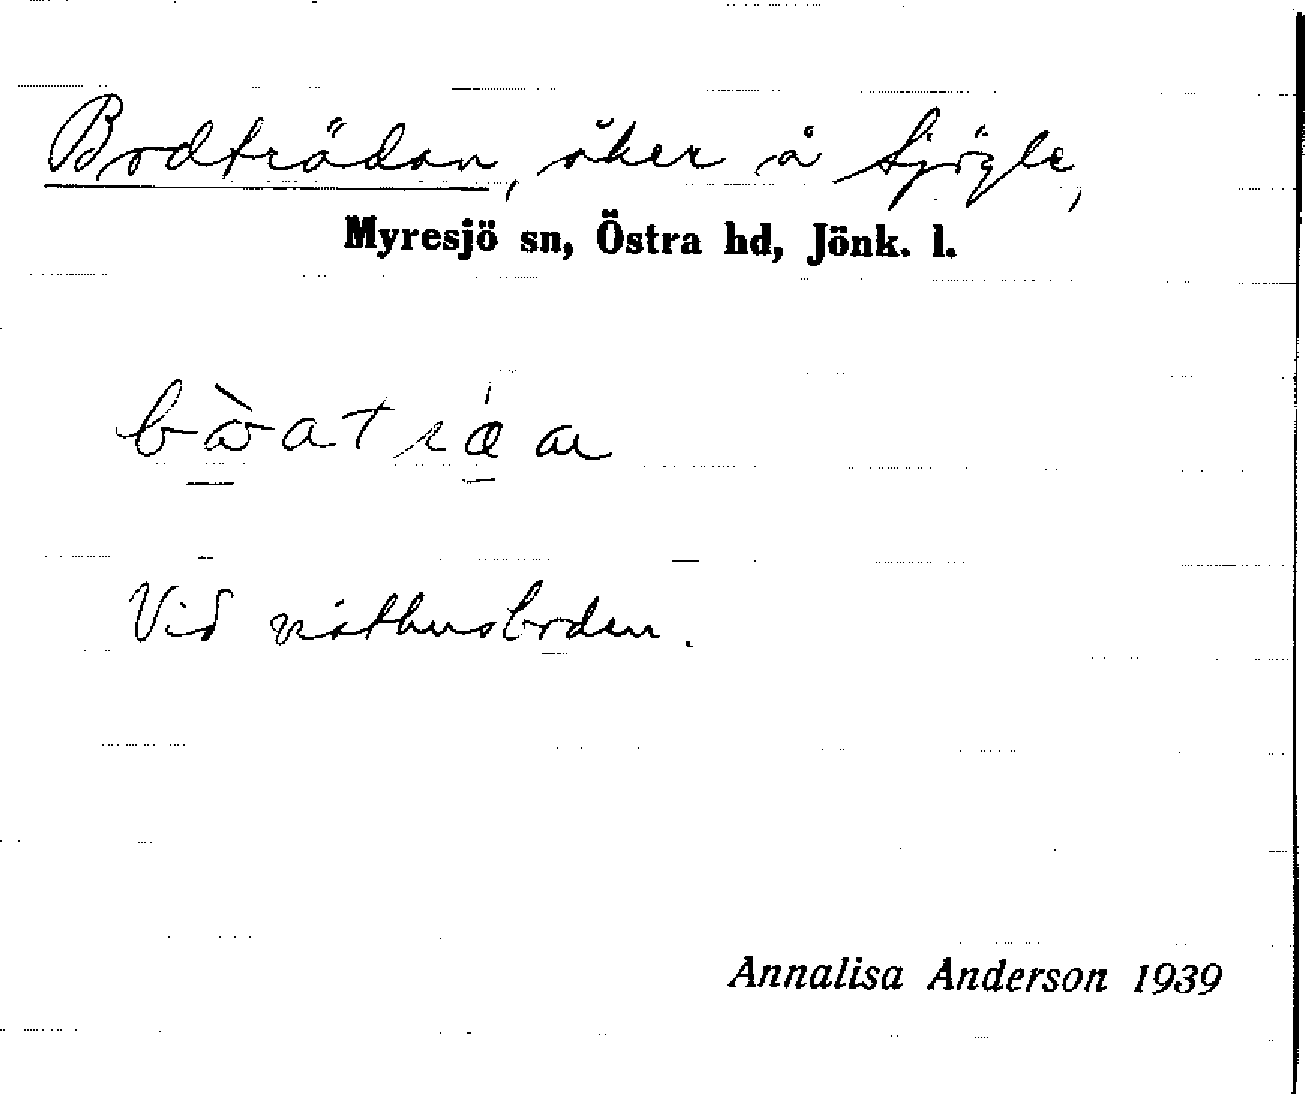 Bodträdan, åker å Sjögle,
Myresjö sn, Östra hd, Jönk. l.
Vid växthusboden.
Annalisa Anderson 1939